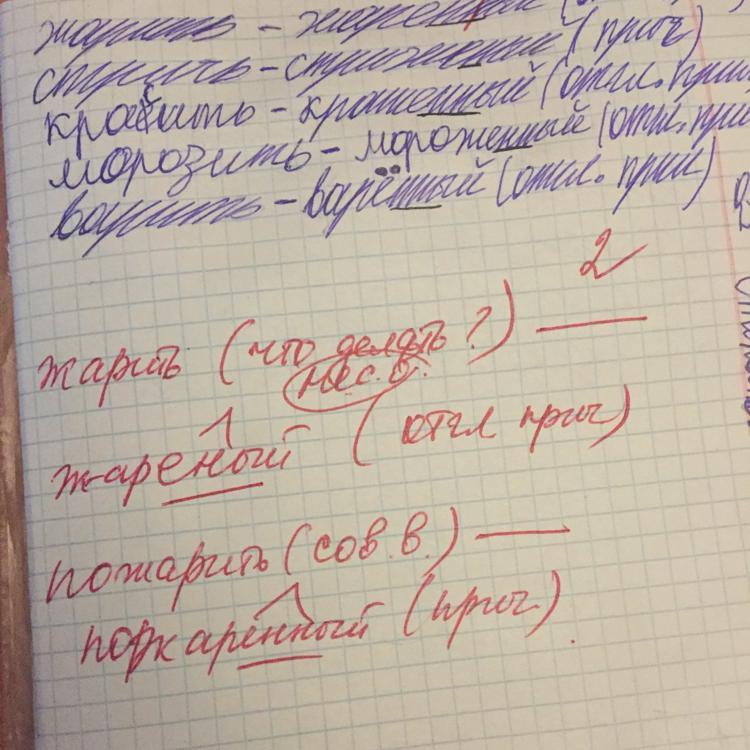 жарить - жаренный
стричь - стриженный (прич)
красить - крашенный (отгл. прил
морозить - мороженный (отгл. при
варить - варённый (отгл. прил)
2
жарить (что делать?) —
нес. в.
жареный (отгл прич)
пожарить (сов. в.) —
поджаренный (прич).